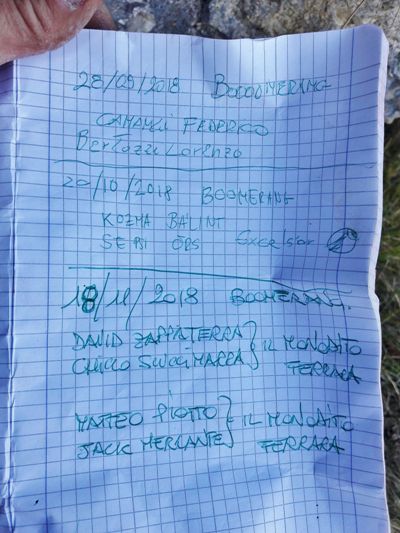 28/09/2018 BOOOOMERANG
CAMANZI FEDERICO
Bertozzi Lorenzo
20/10/2018 BOOMERANG
KOZMA BÁLINT
SEBI ÖRS Excelsior
18/11/2018 BOOMERANG.
DAVID ZAPPATERRA } IL MONODITO
CHICCO FERRARA
MATTEO PIOTTO } IL MONODITO
JACK MERCANTE FERRARA